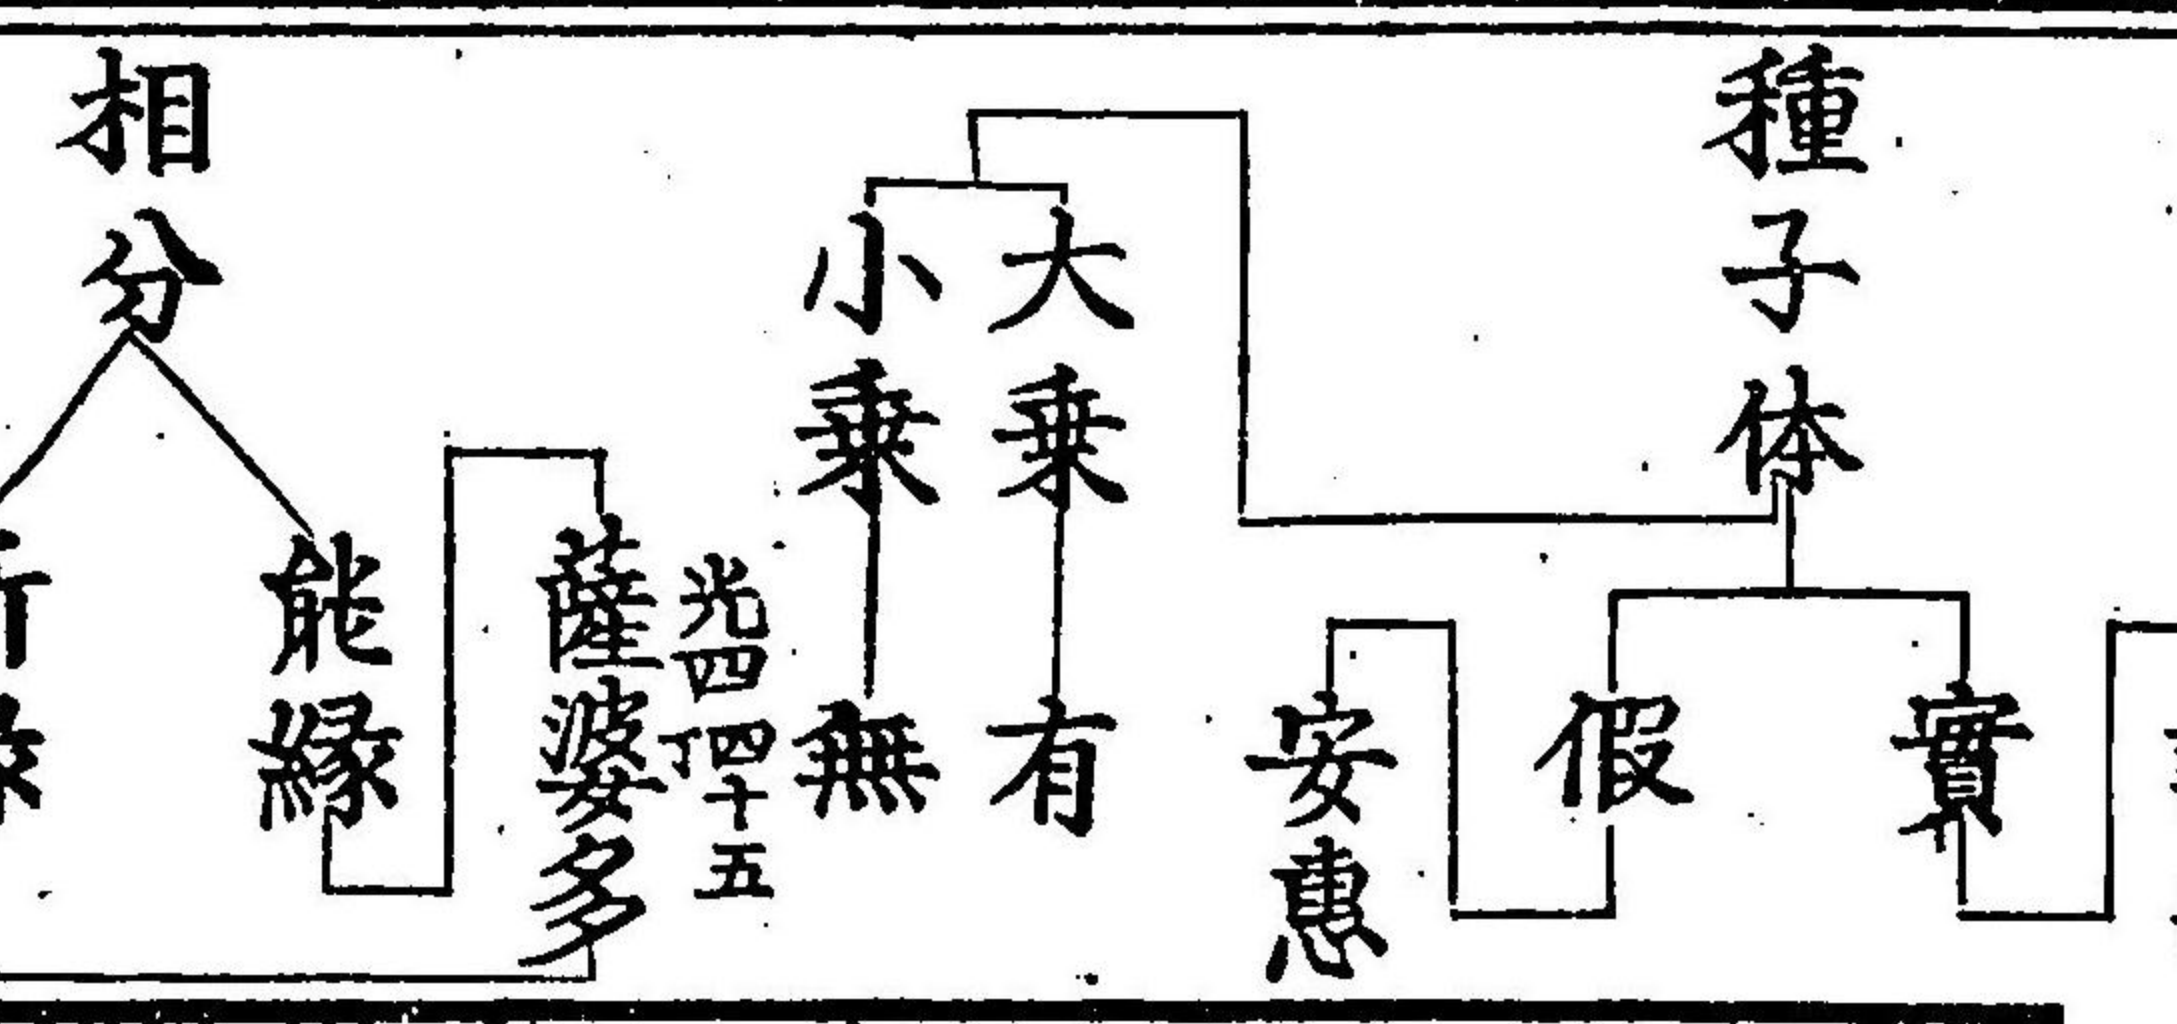 種子体
實
假
安惠
大乗
有
小乗
無
光四 四十五丁
薩婆多
相分
能縁